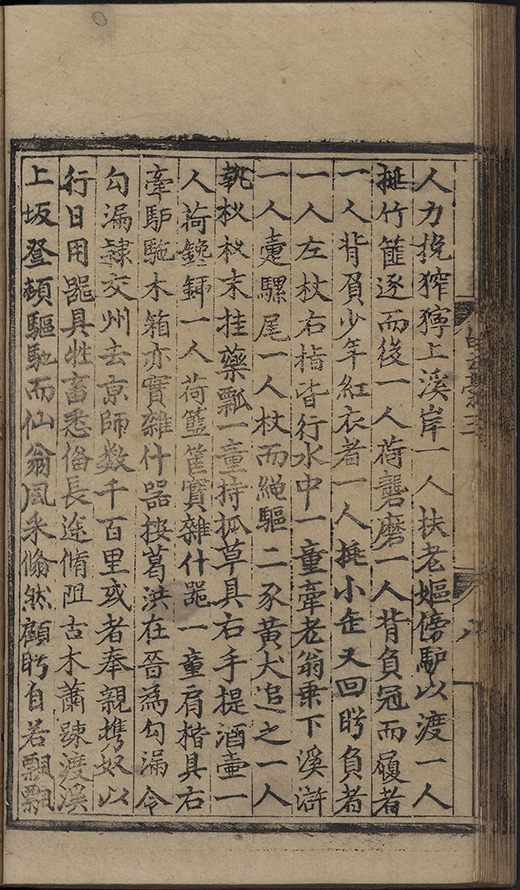 人力挽上溪岸一人扶老嫗傍馿以渡一人
竹篚逐而後一人荷礱磨一人背負冠而履者
一人背負少年紅衣者一人小缶又回眄負者
一人左杖右皆行水中一童牽老翁乗下溪滸
一人騾尾一人杖而繩驅二豕黄犬追之一人
執杖杖末挂藥瓢一童持狐草具右手提酒壷一
人荷鑱鍤一人荷籃筐實雜什噐一童肩楷具右
牽馿䭾木箱亦實雜什噐按葛洪在晉為勾漏令
勾漏隸交州去京師数千百里或者奉親携奴以
行日用噐具牲畜悉俻長途脩阻古木蕭踈渡溪
上坂登頓驅馳而仙翁風采翛然顧眄自若飄飄